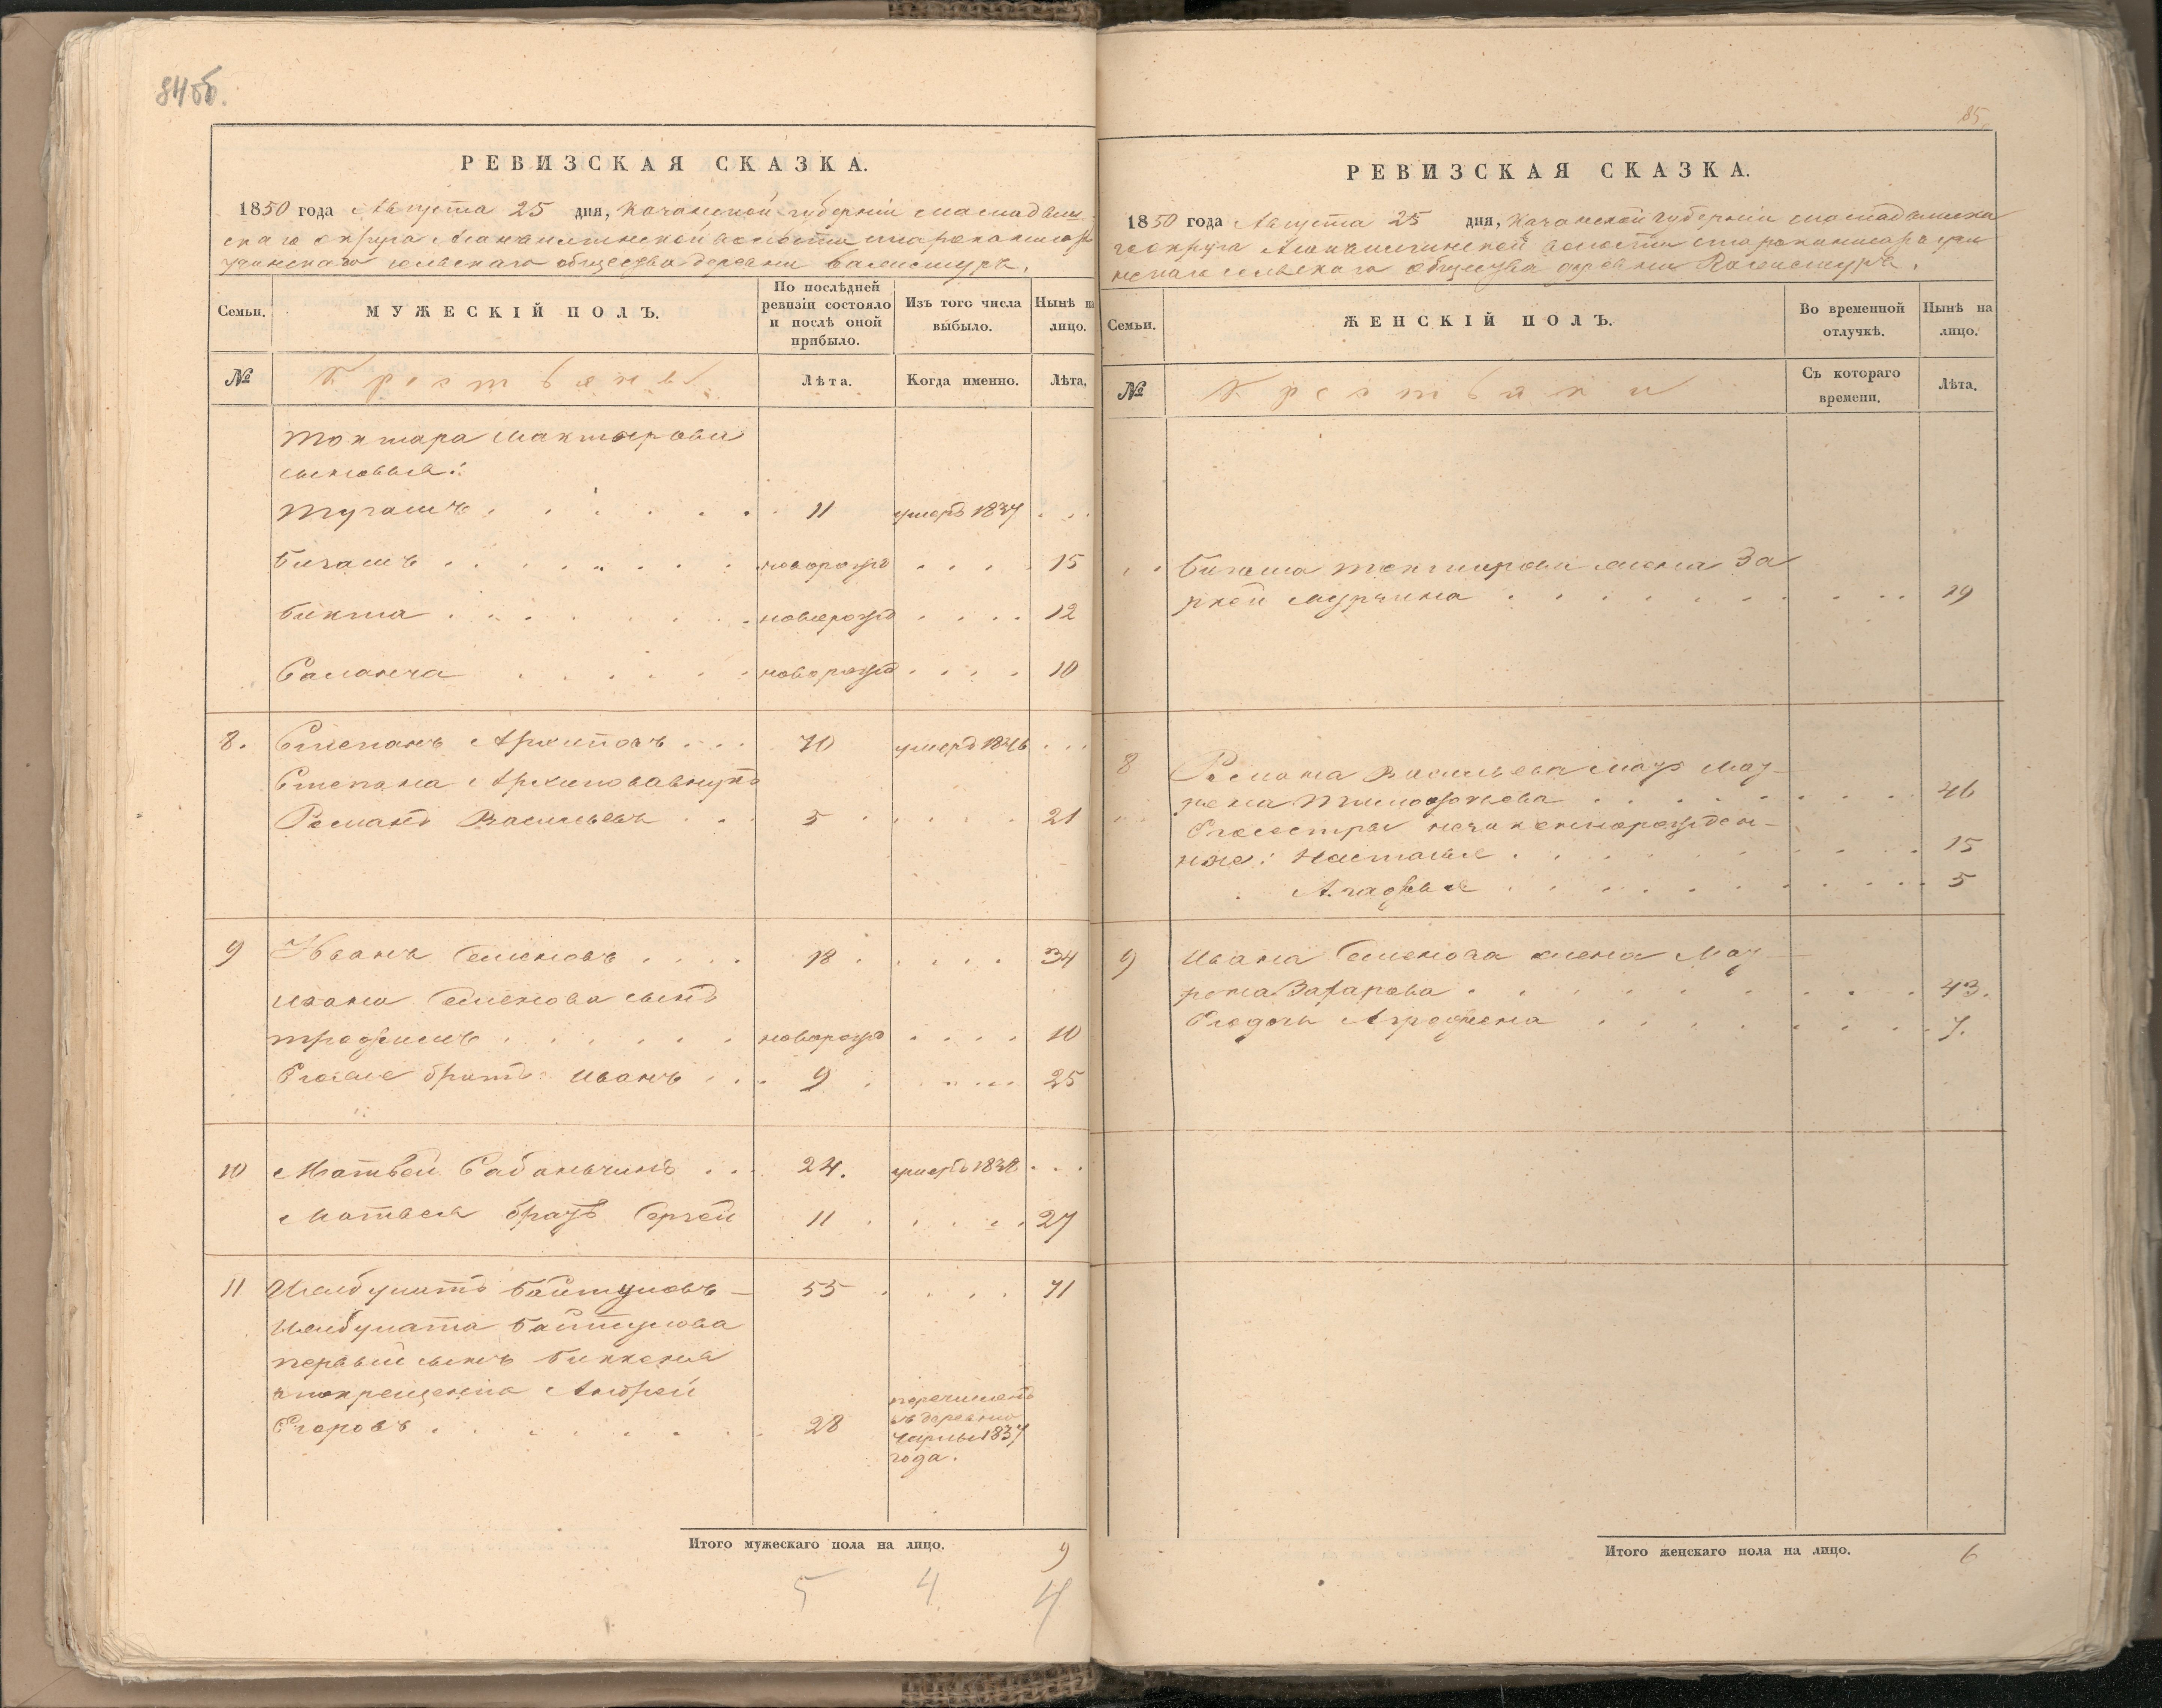 84об.
РЕВИЗСКАЯ СКАЗКА.
1850 года Августа 25 дня, Казанской губерніи Мамадыш
скаго округа волости
сельскаго общества деревни
Семьи.
МУЖЕСКІЙ ПОЛЪ.
По послѣдней ревизіи состояло и послѣ оной прибыло.
Изъ того числа выбыло.
Нынѣ на лицо.
№
Крестьяне
Лѣта.
Когда именно.
Лѣта.
Токтара
сыновья:
Тугашъ 11 умеръ 1837
Бигашъ новорожд 15
Бикта новорожд 12
Саланча новорожд 10
8. Степанъ Архиповъ 70 умеръ 1846
Степана Архипова внукъ
Романъ Васильевъ 5 21
9 Иванъ Семеновъ 18 34
Ивана Семенова сынъ
Трофимъ новорожд 10
Его же братъ Иванъ 9 25
10 Матвей Сабанчинъ 24. умеръ 1838
Матвея братъ Сергей 11 27
11 Ишбулатъ Байтуловъ 55 71
Ишбулата Байтулова
первый сынъ Биккеня
по крещеніи Андрей
Егоровъ 28 перечисленъ
въ деревню
1837
года.
Итого мужескаго пола на лицо. 9
5 4 4
85.
РЕВИЗСКАЯ СКАЗКА.
1850 года Августа 25 дня, Казанской губерніи Мамадышска
го округа волости
сельскаго общества деревни
Семьи.
ЖЕНСКІЙ ПОЛЪ.
Во временной отлучкѣ.
Нынѣ на лицо.
№
Крестьянки
Съ котораго времени.
Лѣта.
Бигаша Токтарова жена За
19
8 Романа Васильева мать Мат
рена 46
Его сестры
ные: Настасья 15
Агафья 5
9 Ивана Семенова жена Мат
рена Захарова 43.
Его дочь Аграфена 7.
Итого женскаго пола на лицо. 6